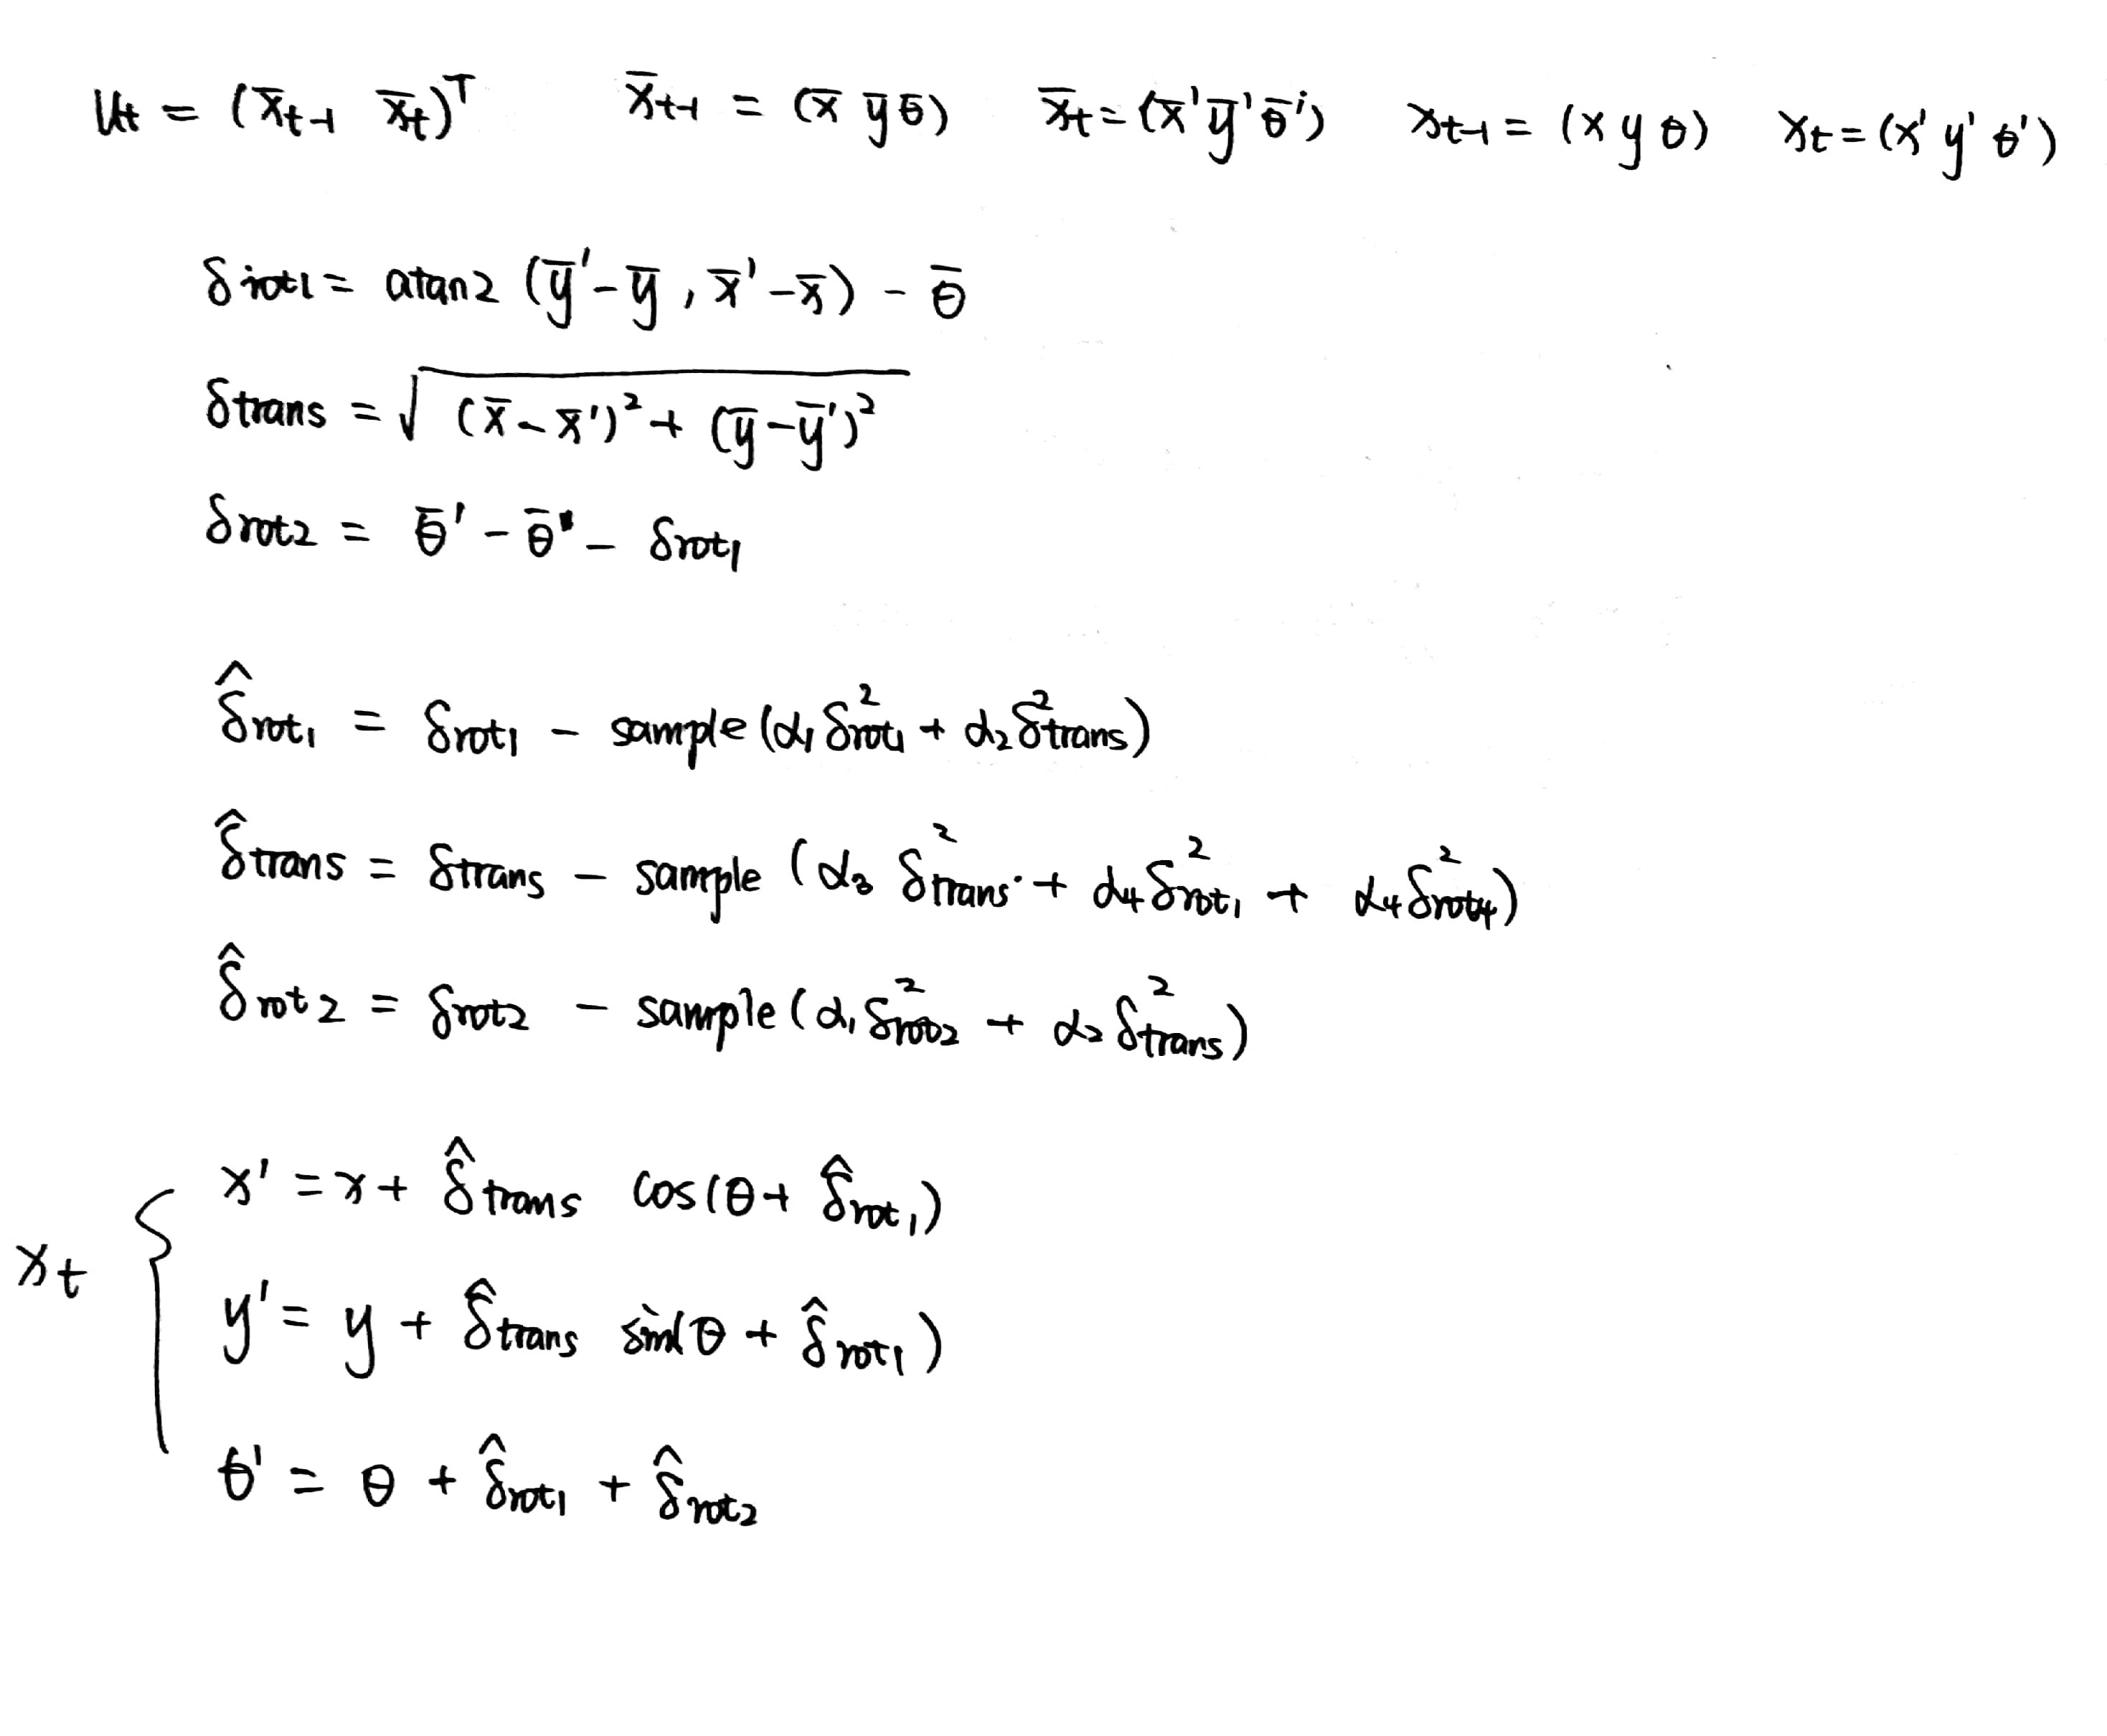 u_t = (x̄_{t-1} x̄_t)^T x̄_{t-1} = (x̄ ȳ θ̄) x̄_t = (x̄' ȳ' θ̄') x_{t-1} = (x y θ) x_t = (x' y' θ')
δ_rot1 = atan2 (ȳ' - ȳ , x̄' - x̄) - θ̄
δ_trans = √((x̄ - x̄')² + (ȳ - ȳ')²)
δ_rot2 = θ̄' - θ̄ - δ_rot1
δ̂_rot1 = δ_rot1 - sample (α₁ δ²_rot1 + α₂ δ²_trans)
δ̂_trans = δ_trans - sample (α₃ δ²_trans + α₄ δ²_rot1 + α₄ δ²_rot4)
δ̂_rot2 = δ_rot2 - sample (α₁ δ²_rot2 + α₂ δ²_trans)
x' = x + δ̂_trans cos(θ + δ̂_rot1)
x_t { y' = y + δ̂_trans sin(θ + δ̂_rot1)
θ' = θ + δ̂_rot1 + δ̂_rot2